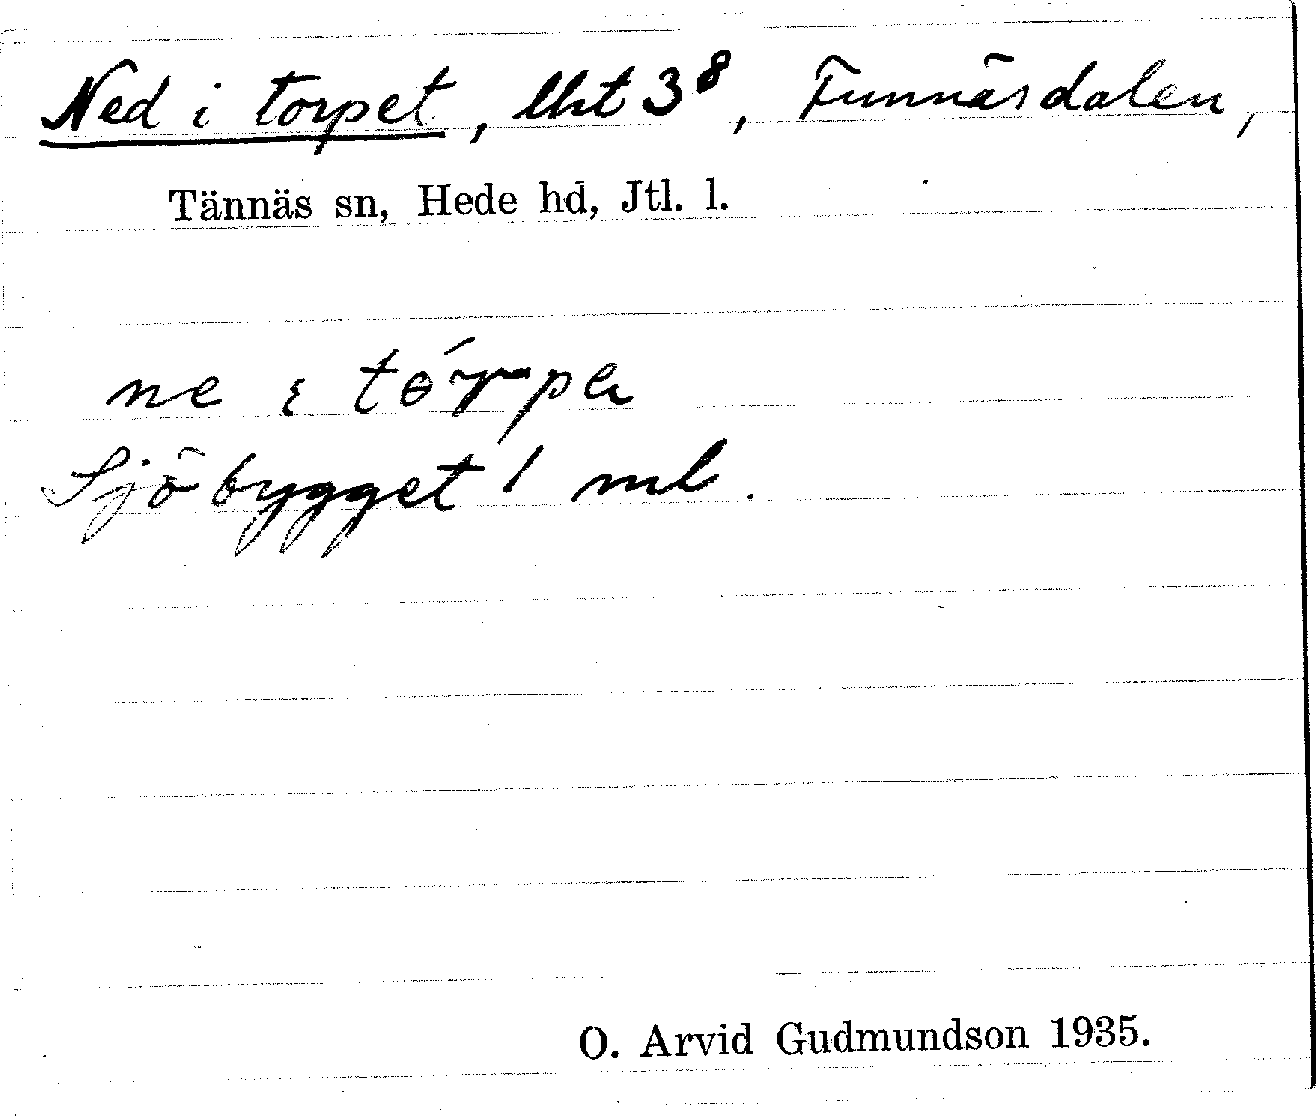 Ned i torpet, lht 3⁸, Funnäsdalen,
Tännäs sn, Hede hd, Jtl. l.
ne ɩ tɵ́rpa
Sjöbygget 1 ml.
O. Arvid Gudmundson 1935.